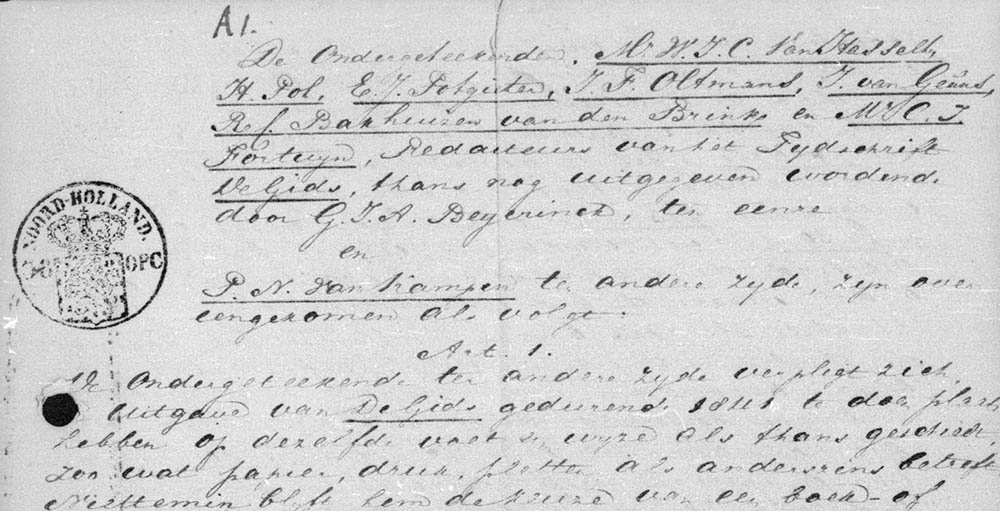 A1.
De Ondergeteekenden, Mr W. J. C. Van Hasselt,
H. Pol, E. J. Potgieter, J. F. Oltmans, J. van Geuns,
R. C. Bakhuizen van den Brink en Mr C. J.
Fortuyn, Redacteurs van het Tydschrift
De Gids, thans nog uitgegeven wordende
door G. J. A. Beyerinck, ter eenre
en
P. N. van Kampen ter andere zyde zyn over
eengekomen als volgt.
NOORD-HOLLAND.
OPC
Art. 1.
De Ondergeteekende ter andere zyde verpligt zich,
Uitgave van De Gids gedurende 1841 te doen plaats
hebben op dezelfde voet en wyze als thans geschiedt,
zoo wat papier, druk, platten als anderszins betreft
Niettemin blyft hem de keuze van een boek- of